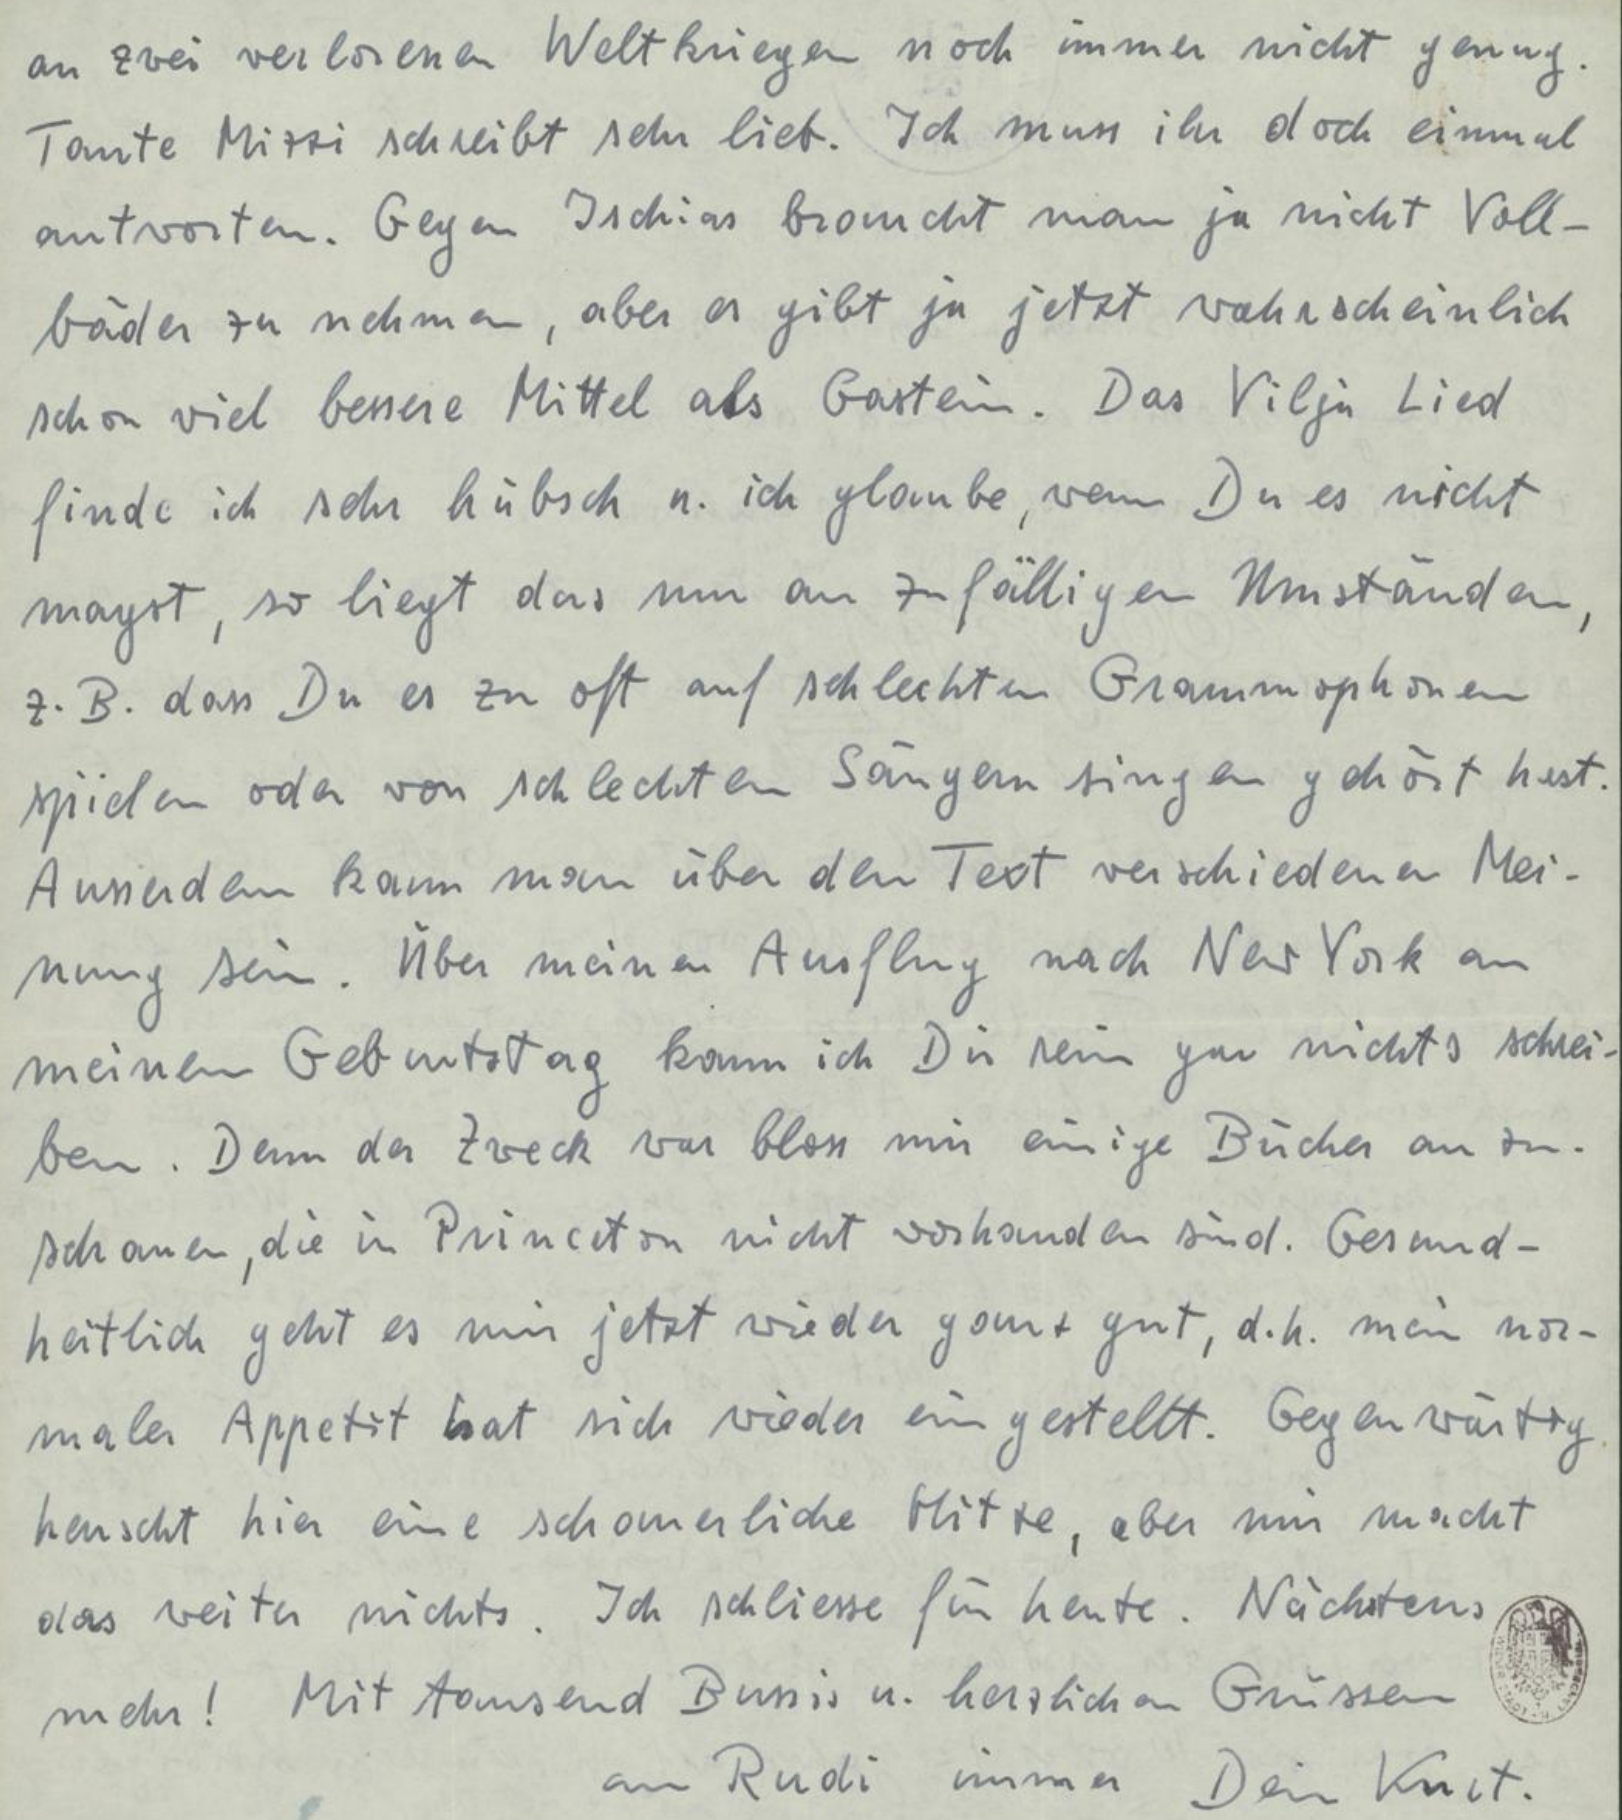 an zwei verlorenen Weltkriegen noch immer nicht genug.
Tante Mizzi schreibt sehr lieb. Ich muss ihr doch einmal
antworten. Gegen Ischias braucht man ja nicht Voll-
bäder zu nehmen, aber es gibt ja jetzt wahrscheinlich
schon viel bessere Mittel als Gastein. Das Vilja Lied
finde ich sehr hübsch u. ich glaube, wenn Du es nicht
magst, so liegt das nur an zufälligen Umständen,
z. B. dass Du es zu oft auf schlechten Grammophonen
spielen oder von schlechten Sängern singen gehört hast.
Ausserdem kann man über den Text verschiedener Mei-
nung sein. Über meinen Ausflug nach New York an
meinem Geburtstag kann ich Dir rein gar nichts schrei-
ben. Denn der Zweck war bloss mir einige Bücher anzu-
schauen, die in Princeton nicht vorhanden sind. Gesund-
heitlich geht es mir jetzt wieder ganz gut, d.h. mein nor-
maler Appetit hat sich wieder eingestellt. Gegenwärtig
herrscht hier eine schauerliche Hitze, aber mir macht
das weiter nichts. Ich schliesse für heute. Nächstens
mehr! Mit tausend Bussis u. herzlichen Grüssen
an Rudi immer Dein Kurt.